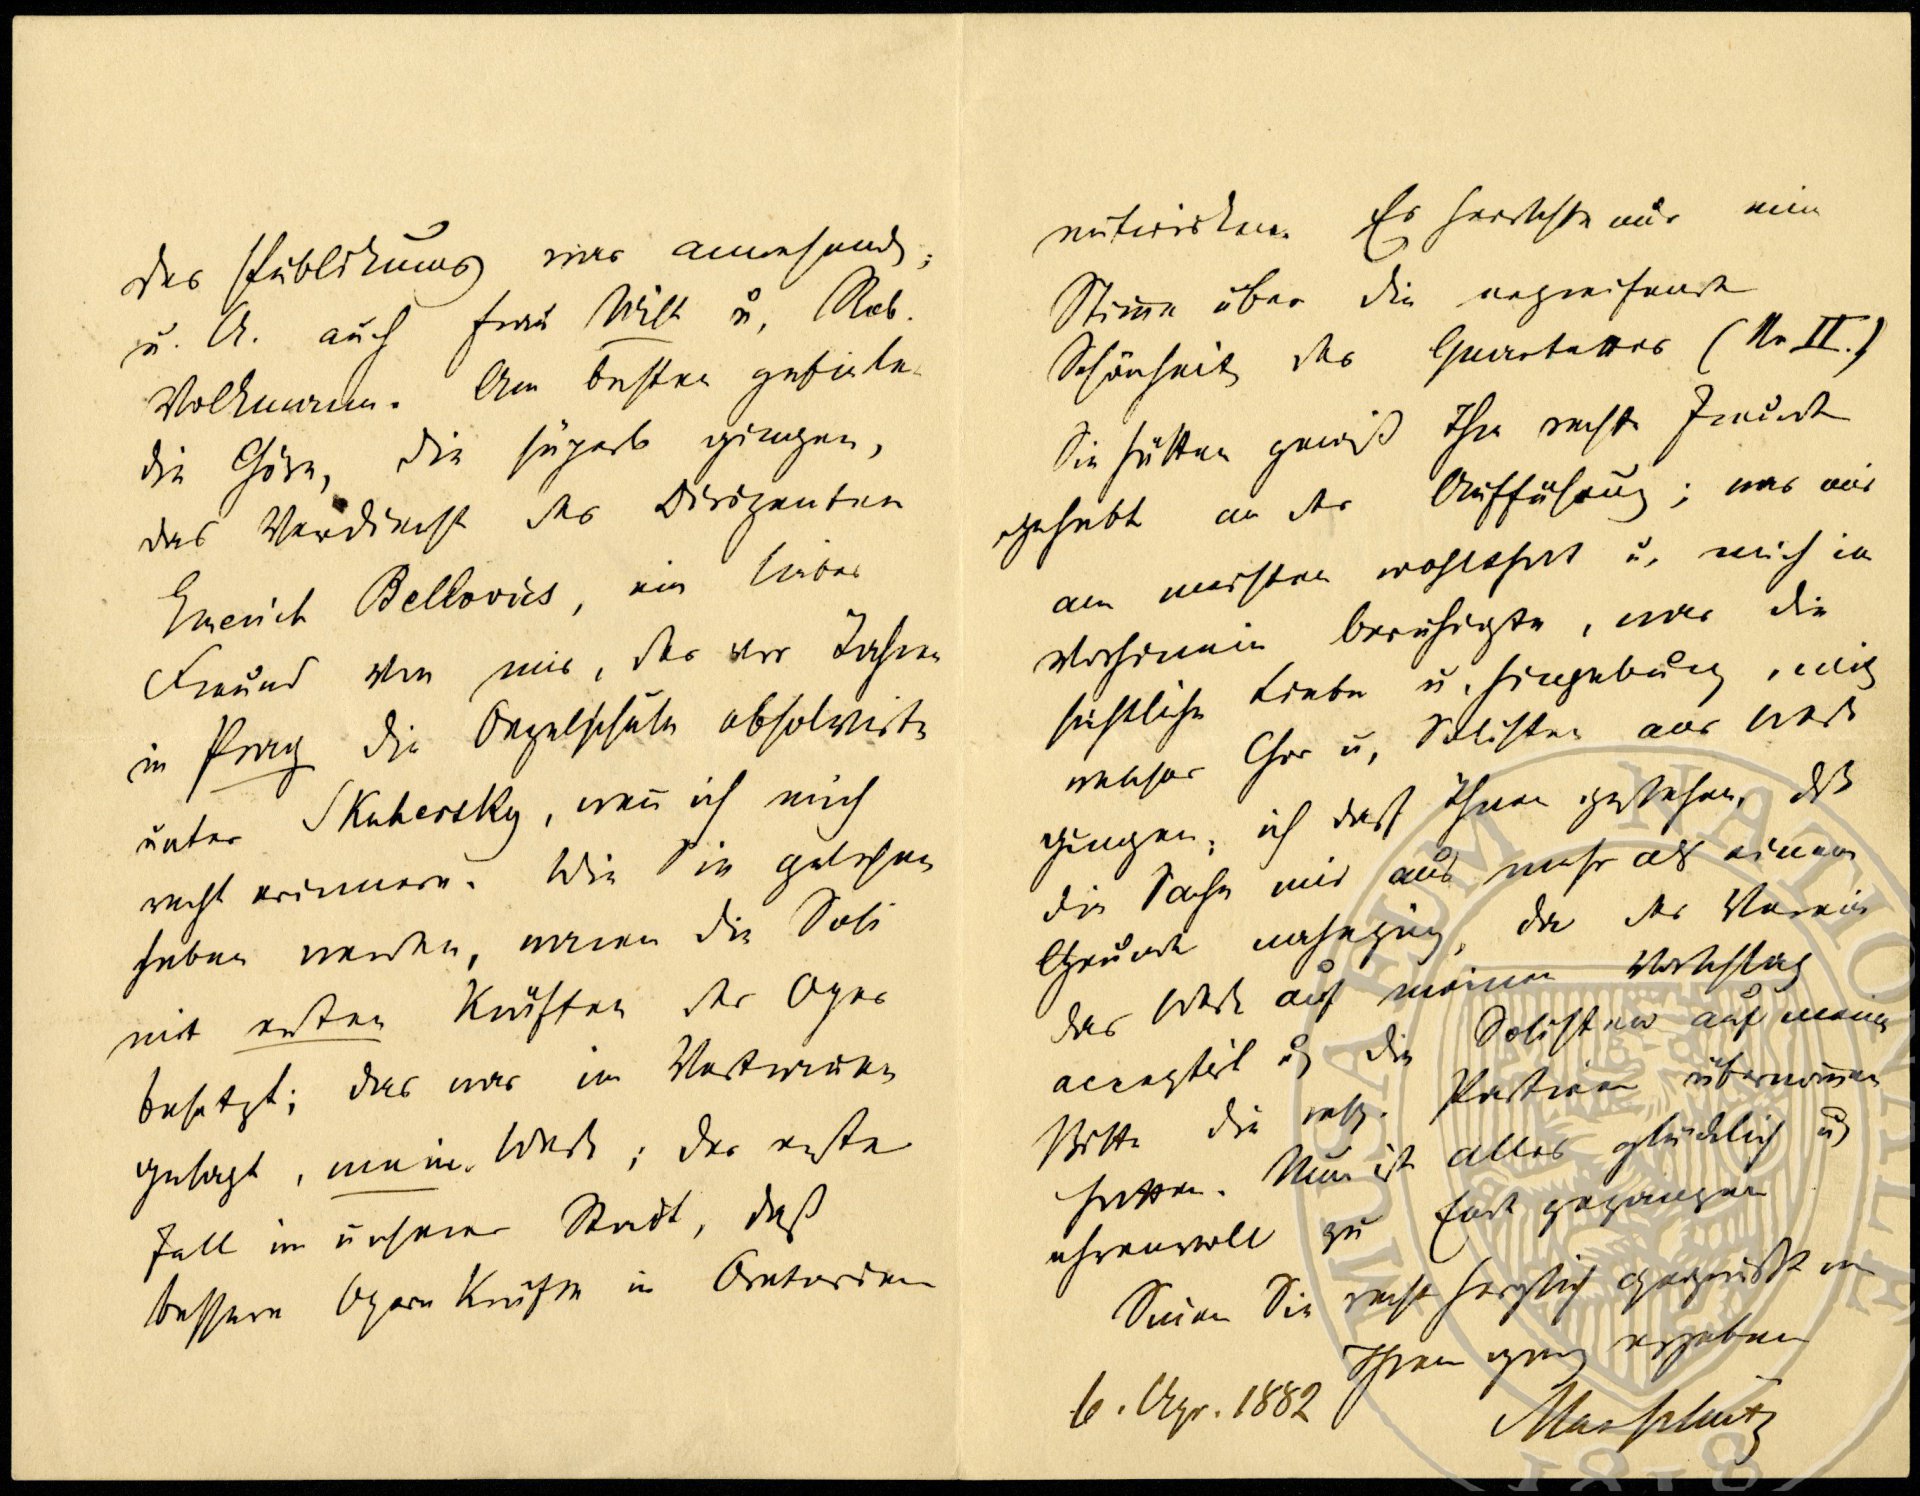 des Publikums war anwesend;
u. A. auch Frau Wilt u. Rob.
Volkmann. Am besten gefielen
die Chöre, die superb gingen,
das Verdienst des Dirigenten
Emerich Bellovics, ein lieber
Freund von mir, der vor Jahren
in Prag die Orgelschule absolvirte
unter Skuhersky, wenn ich mich
recht erinnere. Wie Sie gelesen
haben werden, waren die Soli
mit ersten Kräften der Oper
besetzt; das war im Vertrauen
gesagt, mein Werk; der erste
Fall in unserer Stadt, daß
bessere Opernkräfte in Oratorien
mitwirken. Es herrschte nur eine
Stimme über die ergreifende
Schönheit des Quartettes (No II.)
Sie hätten gewiß Ihre rechte Freude
gehabt an der Aufführung; was mir
am meisten wohlthat u. mich im
Vorhinein beruhigte, war die
sichtliche Liebe u. Hingebung, mit
welcher Chor u. Solisten ans Werk
gingen; ich darf Ihnen gestehen, daß
die Sache mir aus mehr als einem
Grunde naheging, da der Verein
das Werk auf meinen Vorschlag
acceptirt u. die Solisten auf meine
Bitte die resp. Partien übernommen
hatten. Nun ist alles glücklich u.
ehrenvoll zu Ende gegangen
Seien Sie recht herzlich gegrüßt von
Ihrem ganz ergebenen
6. Apr. 1882
MUSAEUM NATIONALE
1818